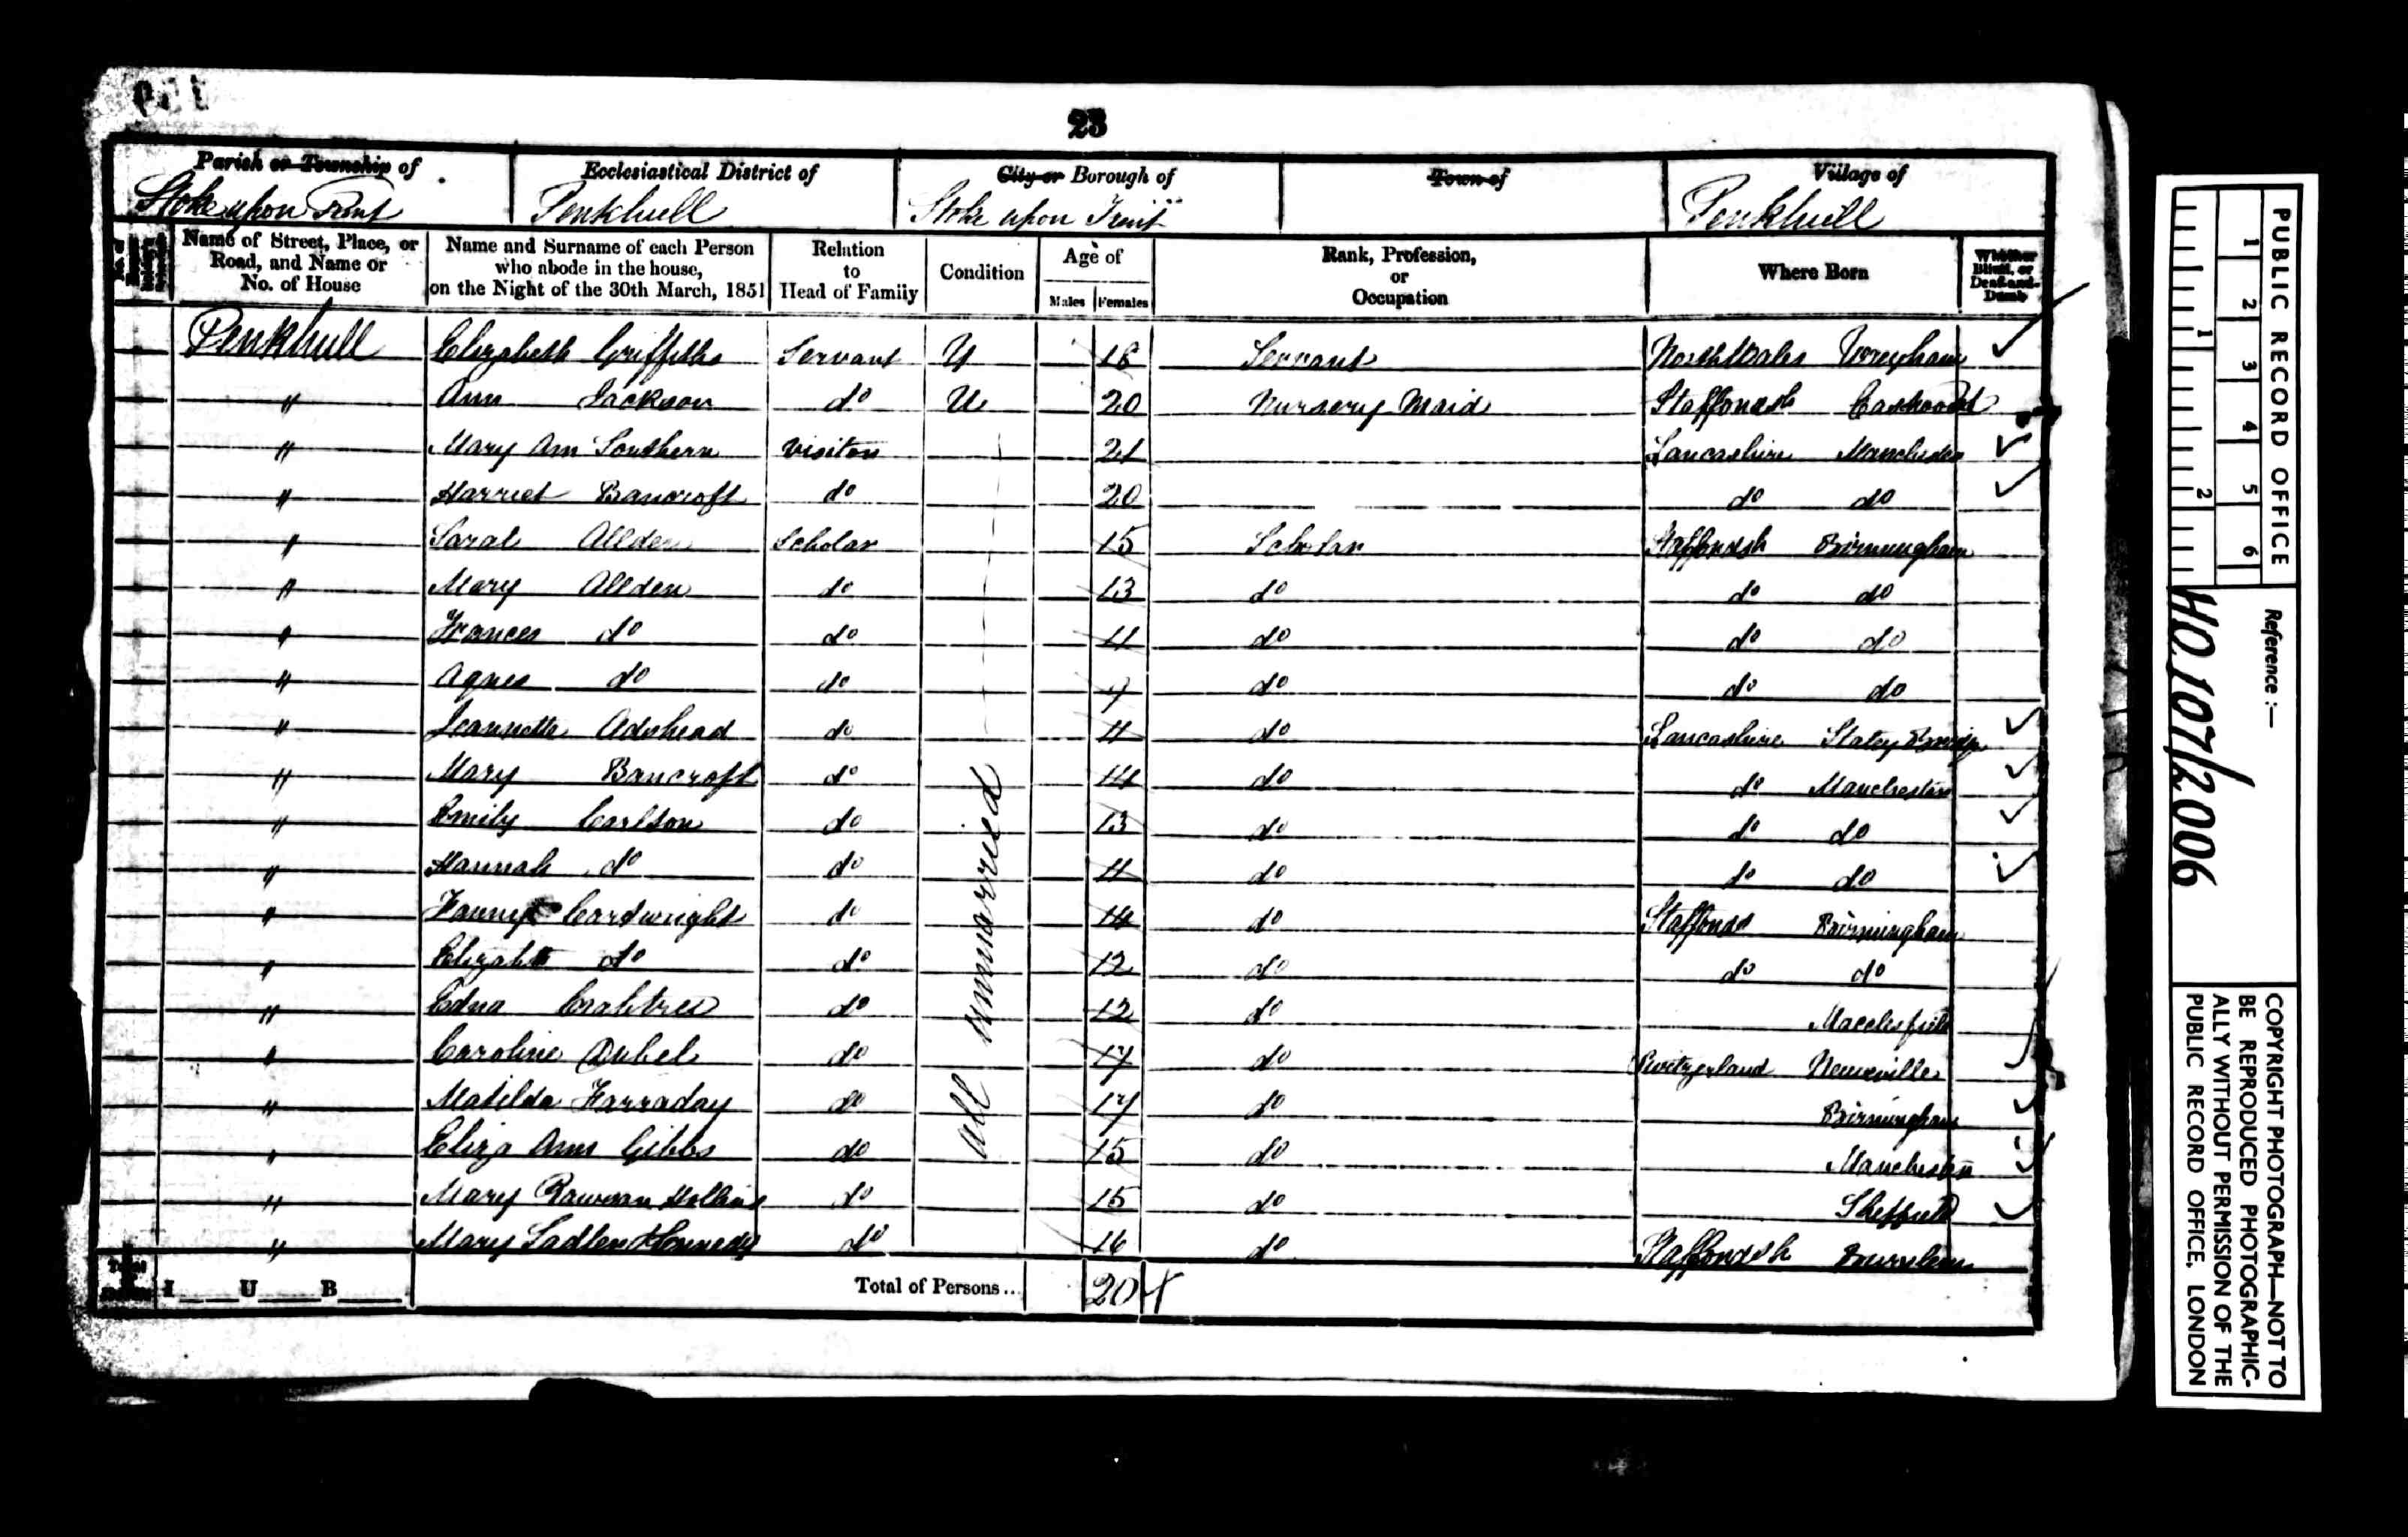 23
Parish or Township of
Ecclesiastical District of
City or Borough of
Town of
Village of
Stoke upon Trent
Penkhull
Stoke upon Trent
Penkhull
Name of Street, Place, or Road, and Name or No. of House
Name and Surname of each Person who abode in the house, on the Night of the 30th March, 1851
Relation to Head of Family
Condition
Age of
Males
Females
Rank, Profession, or Occupation
Where Born
Whether Blind, or Deaf-and-Dumb
Penkhull Elizabeth Griffiths Servant U Servant North Wales Wrexham
" Ann Jackson do U 20 Nursery Maid Staffordsh
" Mary Ann Southern Visitor 21 Lancashire Manchester
" Harriet Bancroft do 20 do do
" Sarah Allden Scholar 15 Scholar Staffordsh Birmingham
" Mary Allden do 13 do do do
" Frances do do 11 do do do
" Agnes do do 9 do do do
" Jeannette Adshead do 11 do Lancashire Staley Bridge
" Mary Bancroft do 14 do do Manchester
" Emily Carlson do 13 do do do
" Hannah do do 11 do do do
" Fanny Cartwright do 14 do Staffords Birmingham
" Elizabth do do 12 do do do
" Edna Crabtree do 12 do Macclesfield
" Caroline do 17 do Switzerland Neuveville
" Matilda Farraday do 17 do Birmingham
" Eliza Ann Gibbs do 15 do Manchester
" Mary Rawson Hollins do 15 do Sheffield
" Mary Sadler do 16 do Staffordsh Burslem
all unmarried
I U B
Total of Persons... 20
PUBLIC RECORD OFFICE
1 2 3 4 5 6
1 2
Reference :-
HO 107/2006
COPYRIGHT PHOTOGRAPH—NOT TO
BE REPRODUCED PHOTOGRAPHIC-
ALLY WITHOUT PERMISSION OF THE
PUBLIC RECORD OFFICE, LONDON